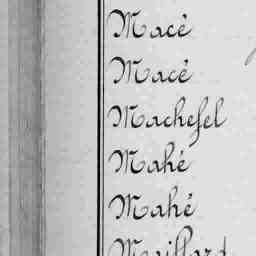 Macé
Macé
Machefel
Mahé
Mahé
Maillard